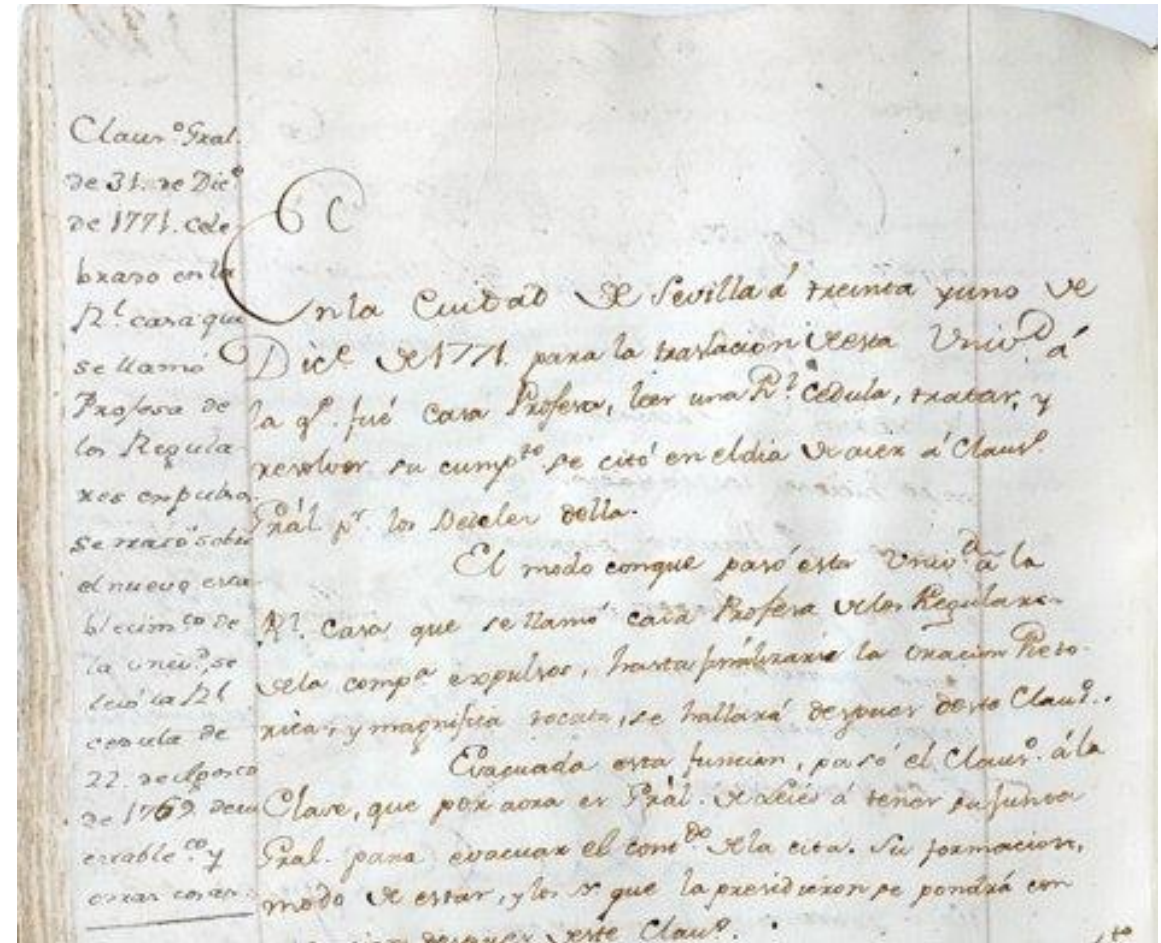 Claus.º Gral.
de 31. de Dic.e
de 1771. cele
brado en la
Rl. casa que
se llamó
Profesa de
los Regula
res expulsos
se trató sobre
el nuevo esta
blecim.to de
la Univ.d, se
leió la Rl
cedula de
22. de Agosto
de 1769. de su
estable.to y
otras cosas.
En la Ciudad de Sevilla á treinta y uno de
Dic.e de 1771. para la traslacion de esta Univ.d á
la q.e fué Casa Profesa, leer una R.l cedula, tratar, y
resolver su cump.to se citó en el dia de aier á Claus.o
Grál. p.r los Bedeles della.
El modo conque pasó esta Univ.d á la
R.l Casa que se llamó casa Profesa de los Regulares
de la comp.a expulsos, hasta finalizarse la oracion Reto-
rica, y magnifica tocata, se hallará despues deste Claus.o.
Evacuada esta funcion, pasó el Claus.o á la
Clase, que por aora es Grál. de Leies á tener su junta
Gral. para evacuar el cont.do de la cita. Su formacion,
modo de estar, y los que la presidieron se pondrá con
despues deste Claus.o.